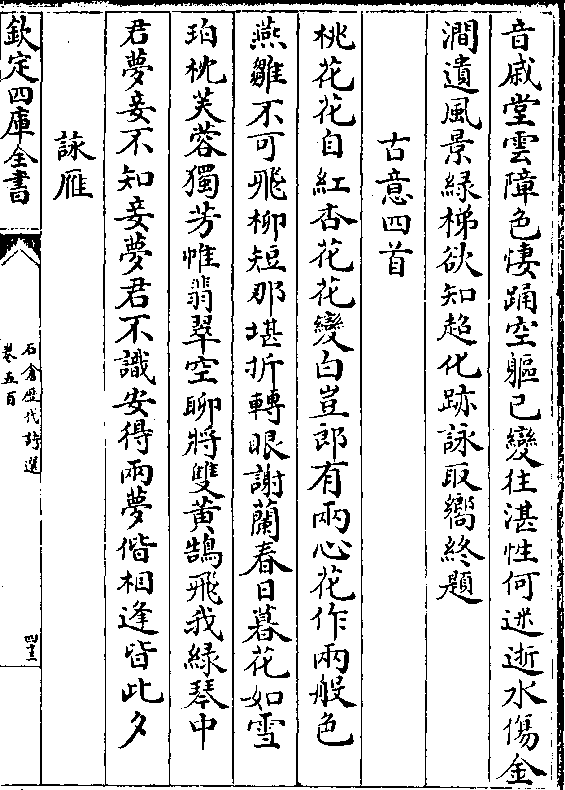 音戚堂雲障色悽踊空軀已變往湛性何迷逝水傷金
澗遺風景綠梯欲知超化跡詠取嚮終題
古意四首
桃花花自紅杏花花變白豈郎有兩心花作兩般色
燕雛不可飛柳短那堪折轉眼謝蘭春日暮花如雪
珀枕芙蓉獨芳帷翡翠空聊將雙黃鵠飛我綠琴中
君夢妾不知妾夢君不識安得兩夢偕相逢皆此夕
詠雁
欽定四庫全書
石倉歷代詩選
卷五百
四十三